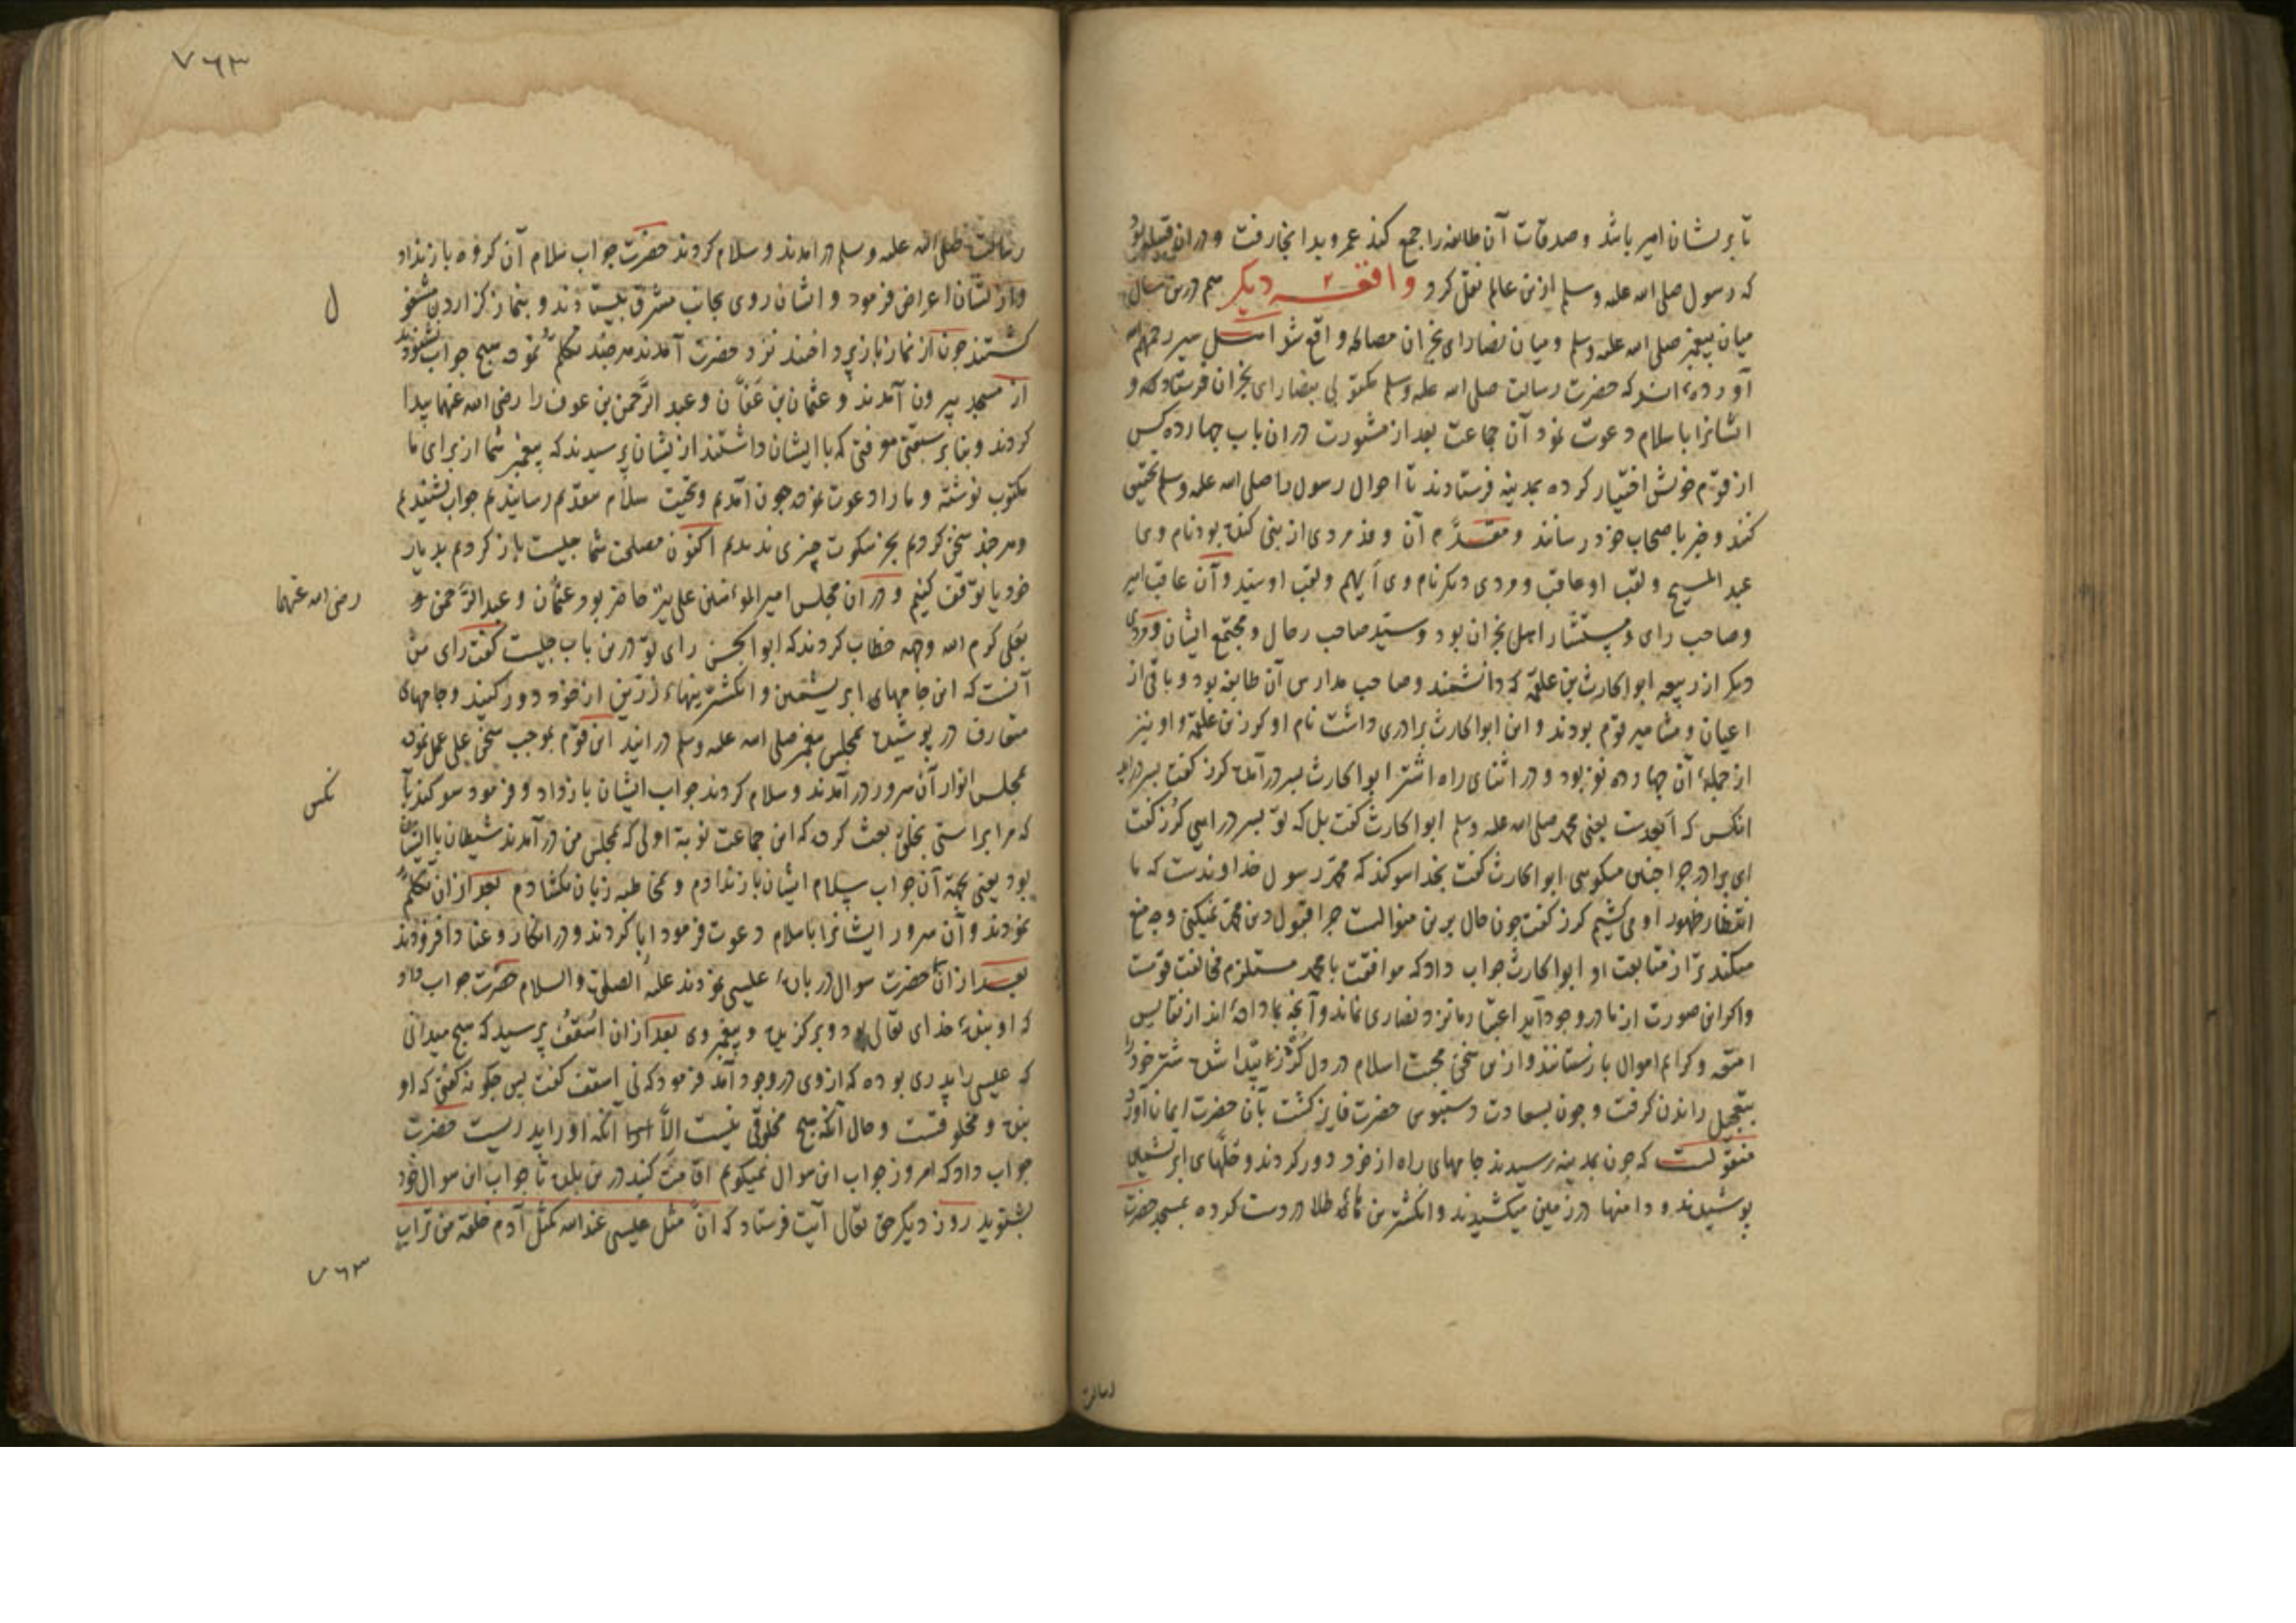 تا بر ایشان امیر باشد و صدقات آن طایفه را جمع کند عمرو بدانجا رفت و در ان قبیله بود
که رسول صلی الله علیه وسلم ازین عالم نقل کرد واقعه دیکر هم درین سال
میان پیغمبر صلی الله علیه وسلم و میان نصارای نجران مصالحه واقع شد اهل سیر رحمهم الله
آورده اند که حضرت رسالت صلی الله علیه وسلم مکتوبی بنصارای نجران فرستاد که و
ایشانرا باسلام دعوت نمود آن جماعت بعد از مشورت در ان باب چهارده کس
از قوم خویش اختیار کرده بمدینه فرستادند تا احوال رسول را صلی الله علیه وسلم تحقیق
کنند و خبر باصحاب خود رسانند و مقدّم آن وفد مردی از بنی کنده بود نام وی
عبد المسیح و لقب او عاقب و مردی دیکر نام وی ایهم و لقب او سیّد و آن عاقب امیر
و صاحب رای و مستشار اهل نجران بود و سیّد صاحب رحال و مجتمع ایشان و مردی
دیکر از ربیعه ابو الحارث بن علقمه که دانشمند و صاحب مدارس آن طایفه بود و باقی از
اعیان و مشاهیر قوم بودند و این ابو الحارث برادری داشت نام او کوز بن علقمه و او نیز
از جمله آن چهارده نفر بود و در اثنای راه اشتر ابو الحارث بسر در آمد کرز کفت بسر دراید
انکس که ابعدست یعنی محمد صلی الله علیه وسلم ابو الحارث کفت بل که تو بسر در ایی کرز کفت
ای برادر چرا چنین میکویی ابو الحارث کفت بخدا سوکند که محمد رسول خداوندست که ما
انتظار ظهور او می کشیم کرز کفت چون حال برین منوالست چرا قبول دین محمد نمیکنی و چه منع
میکند ترا از متابعت او ابو الحارث جواب داد که موافقت با محمد مستلزم مخالفت قومست
و اکر این صورت از ما در وجود آید اعتبار ما نزد نصاری نماند و آنچه بما داده اند از نفایس
امتعه و کرایم اموال باز ستانند و ازین سخن محبت اسلام در دل کرز پیدا شده شتر خود را
بتعجیل راندن کرفت و چون بسعادت دستبوس حضرت فایز کشت بآن حضرت ایمان آورد
منقولست که چون بمدینه رسیدند جامهای راه از خود دور کردند و حلّهای ابریشمین
پوشیدند و دامنها در زمین میکشیدند و انکشترین های طلا در دست کرده بمسجد حضرت
رسالت
۷۶۳
رسالت صلی الله علیه وسلم در امدند و سلام کردند حضرت جواب سلام آن کروه باز نداد
و از ایشان اعراض فرمود و ایشان روی بجانب مشرق بایستادند و بنماز کزاردن مشغو
ل
کشتند چون از نماز باز پرداختند نزد حضرت آمدند هرچند تکلم نموده هیچ جواب نشنودند
از مسجد بیرون آمدند و عثمان بن عفّان و عبد الرّحمن بن عوف را رضی الله عنهما پیدا
کردند و بنا بر سبقتی معرفتی که با ایشان داشتند از یشان پرسیدند که پیغمبر شما از برای ما
مکتوب نوشته و ما را دعوت نموده چون آمدیم و تحیت سلام مقدم رسانیدیم جواب نشنیدیم
و هرچند سخن کردیم بجز سکوت چیزی ندیدیم اکنون مصلحت شما چیست باز کردیم بدیار
خود یا توقف کنیم و در ان مجلس امیر المؤمنین علی نیز حاضر بود عثمان و عبد الرّحمن
رضی الله عنهما
بعلی کرم الله وجهه خطاب کردند که ابو الحسن رای تو درین باب چیست کفت رای من
آنست که این جامهای ابریشمین و انکشترینهای زرّین از خود دور کنید و جامهای
متعارف در پوشیده بمجلس پیغمبر صلی الله علیه وسلم در ایید این قوم بموجب سخن علی عمل نموده
بمجلس انوار آن سرور در آمدند و سلام کردند جواب ایشان باز داد و فرمود سوکند با
نکس
که مرا براستی بخلق بعث کرده که این جماعت نوبة اولی که بمجلس من در آمدند شیطان با ایشان
بود یعنی بجهة آن جواب سلام ایشان باز ندادم و بمخاطبه زبان نکشادم بعد از ان تکلم
نمودند و آن سرور ایشانرا باسلام دعوت فرمود ابا کردند و در انکار و عناد افزودند
بعد از ان حضرت سوال در باب عیسی نمودند علیه الصلوة والسلام حضرت جواب داد
که او بنده خدای تعالی بود و برکزیده و پیغمبر وی بعد از ان اسقف پرسید که هیچ میدانی
که عیسی را پدری بوده که از وی در وجود آمد فرمود که نی اسقف کفت پس چکونه کفتی که او
بنده و مخلوقست و حال آنکه هیچ مخلوقی نیست الّا آنکه او را پدریست حضرت
جواب داد که امروز جواب این سوال نمیکویم اقامت کنید درین بلده تا جواب این سوال خود
بشنوید روز دیکر حق تعالی آیت فرستاد که انّ مثل عیسی عند الله کمثل آدم خلقه من تراب
۷۶۳